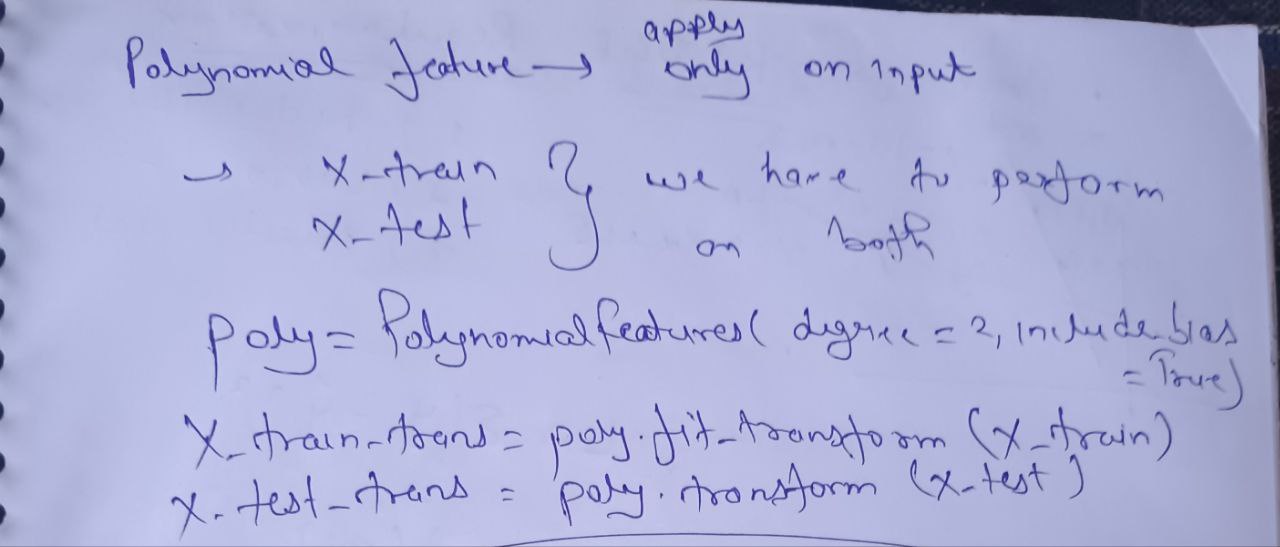 Polynomial feature → apply only on input
→ X_train } we have to perform
X_test } on both
poly = PolynomialFeatures( degree = 2, include_bias
= True)
X_train_trans = poly.fit_transform (X_train)
X_test_trans = poly.transform (X_test)